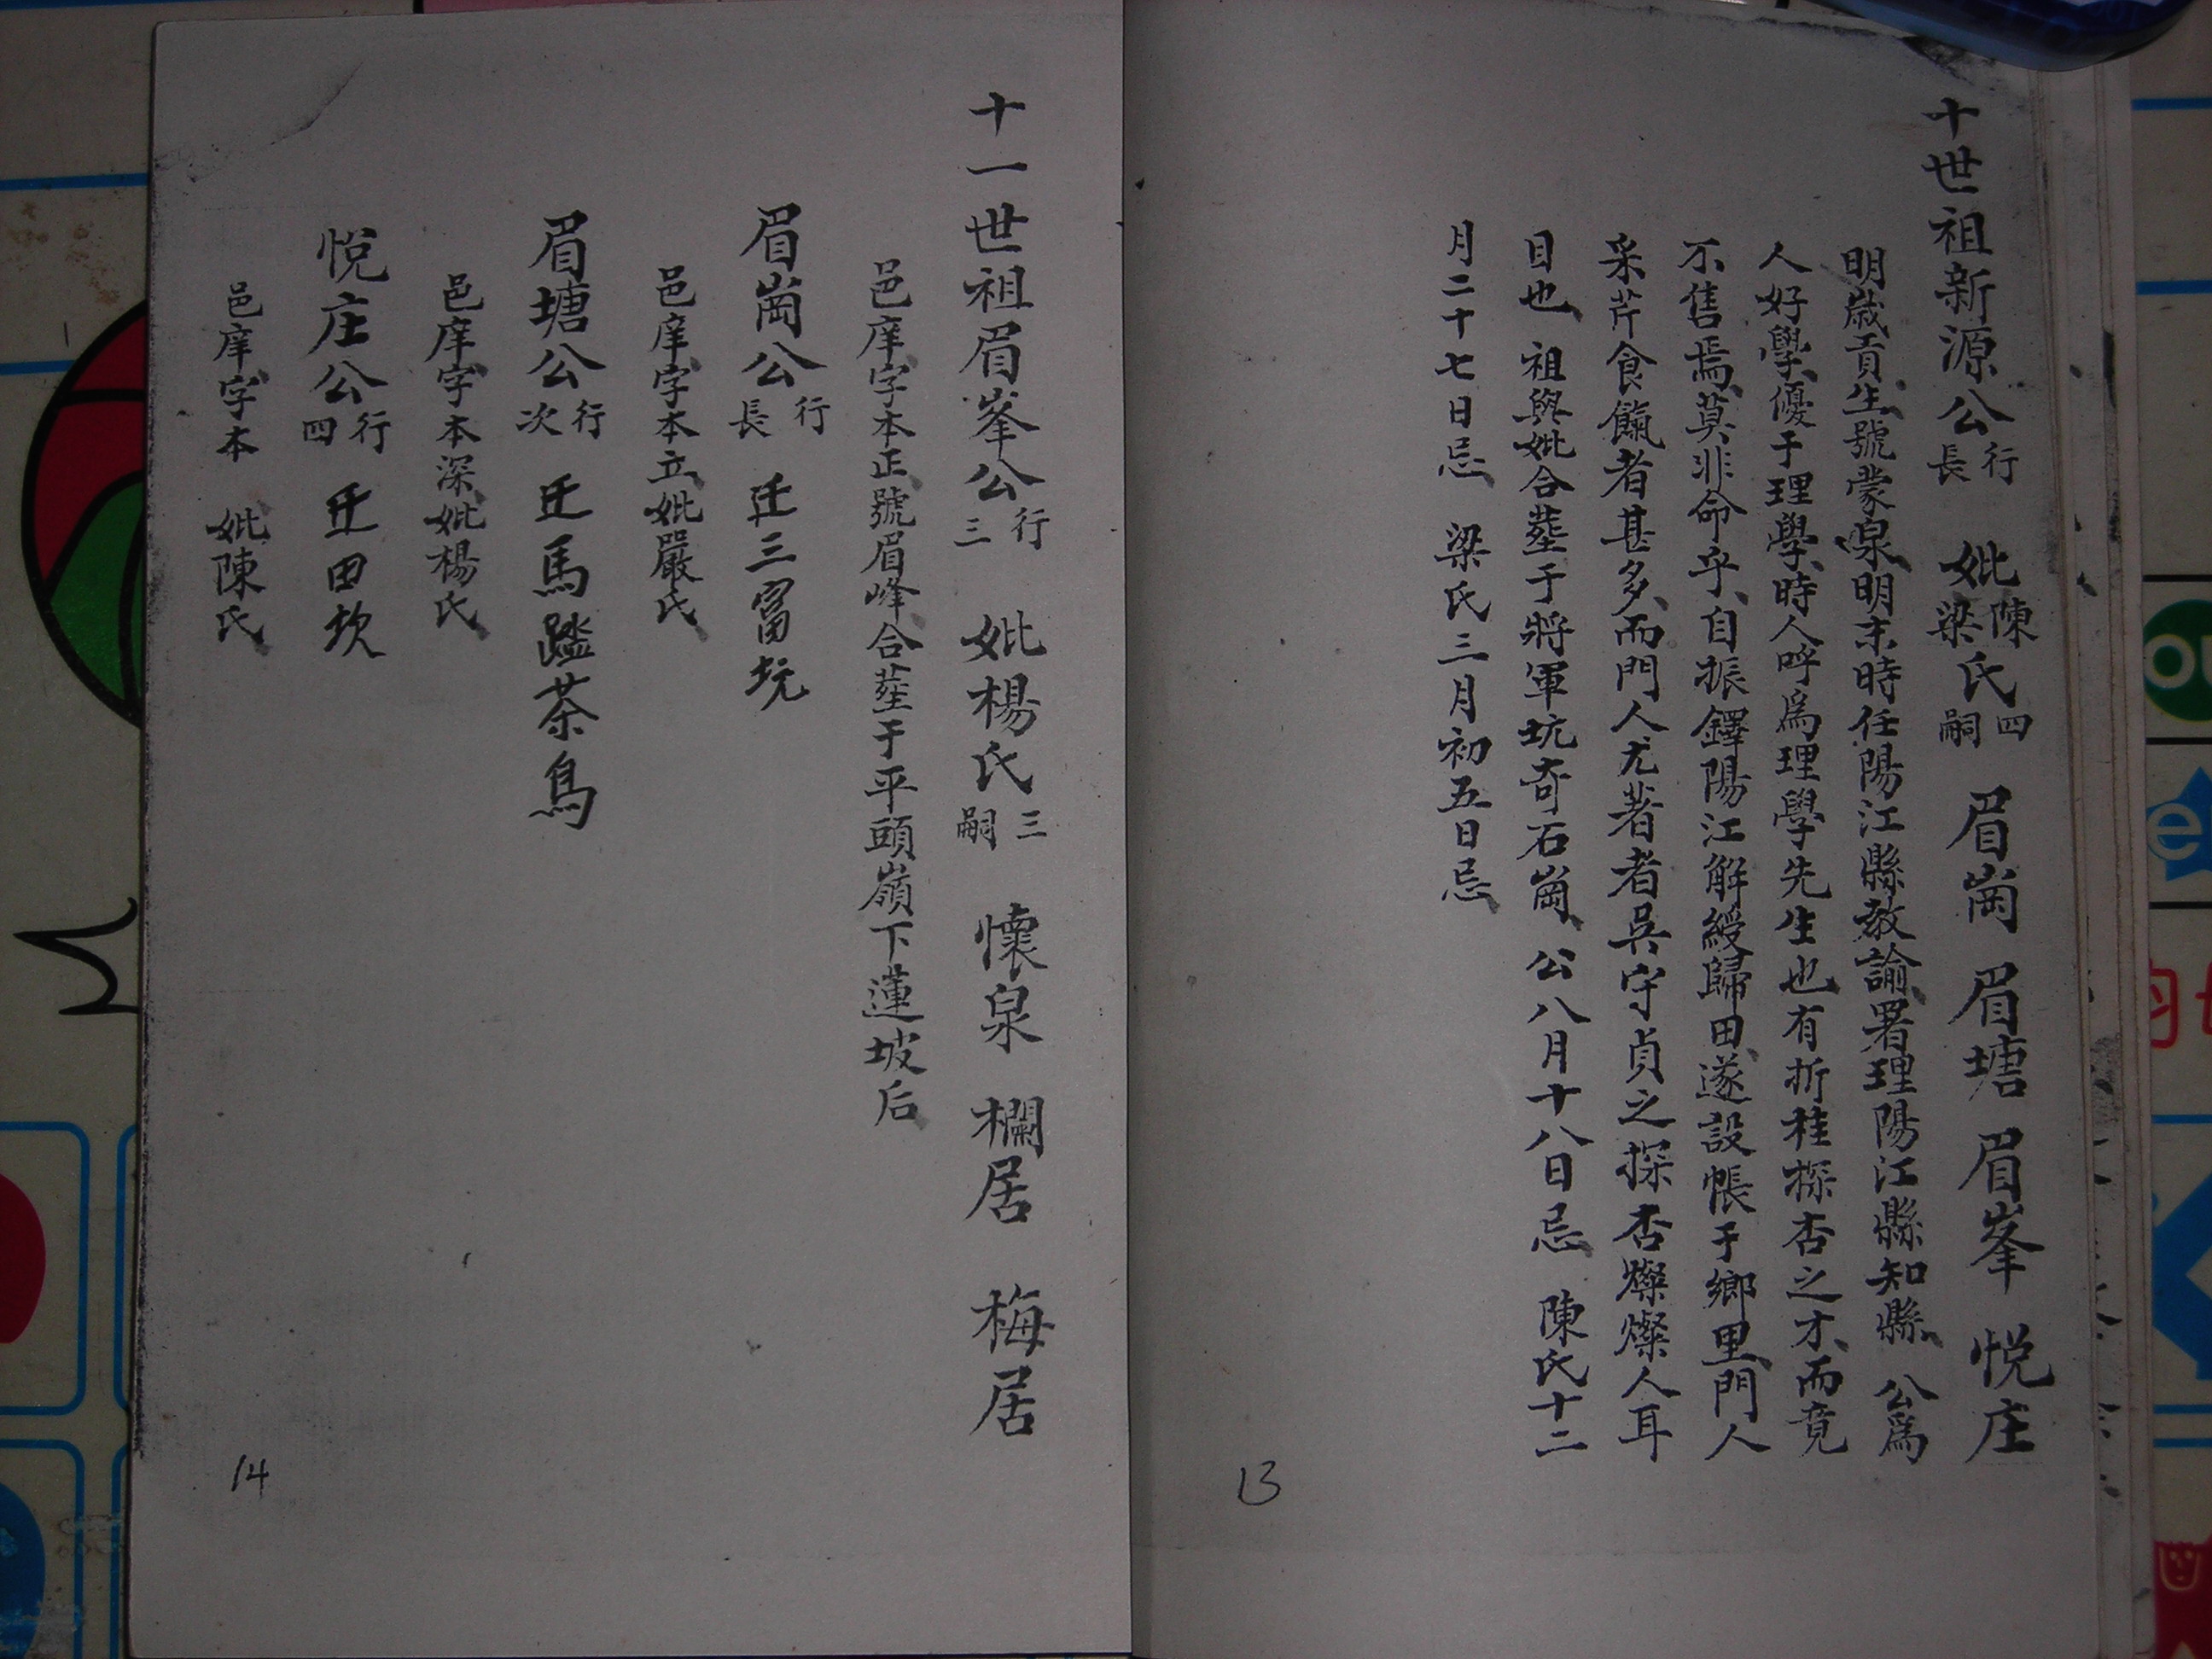 十世祖新源公行長 妣陳梁氏四嗣 眉崗 眉塘 眉峯 悦庄
明歲貢生號蒙泉明末時任陽江縣教諭署理陽江縣知縣 公爲
人好學優于理學時人呼爲理學先生也有折桂探杏之才而竟
不售焉莫非命乎自振鐸陽江解綬歸田遂設帳于鄉里門人
采芹食餼者甚多而門人尤著者吳守貞之探杏燦燦人耳
目也 祖與妣合塟于將軍坑奇石崗 公八月十八日忌 陳氏十二
月二十七日忌 梁氏三月初五日忌
13
十一世祖眉峯公行三 妣楊氏三嗣 懷泉 欄居 梅居
邑庠字本正號眉峰合塟于平頭嶺下蓮坡后
眉崗公行長 迁三富坑
邑庠字本立妣嚴氏
眉塘公行次 迁馬踏茶鳥
邑庠字本深妣楊氏
悦庄公行四 迁田坎
邑庠字本 妣陳氏
14